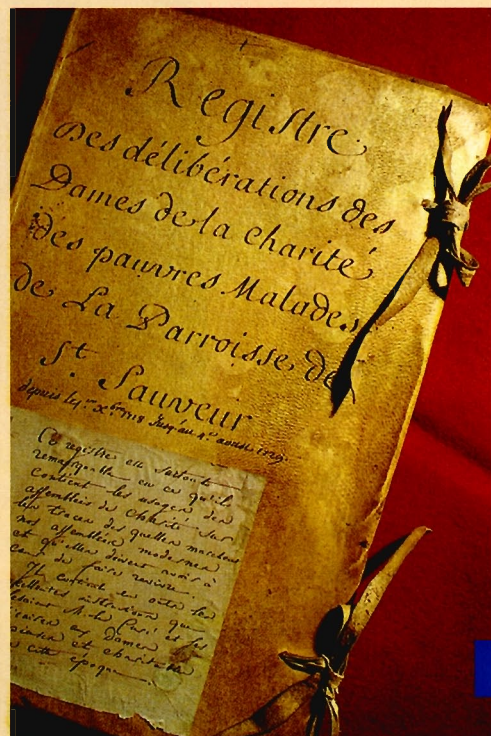 Registre
Des délibérations des
Dames de la charité
des pauvres Malades
de La Parroisse de
St. Sauveur
depuis le 1er Xbre 1718 jusqu'au 4e aoust 1729.
Ce registre est surtout
remarquable en ce qu'il
contient les usages des
assemblées de charité sur
les traces desquelles marchent
nos assemblées modernes
et qu'elles doivent avoir à
cœur de faire revivre.
Il contient en outre les
instructions que
faisaient M. le Curé et les
dames
et charitable
à cette époque